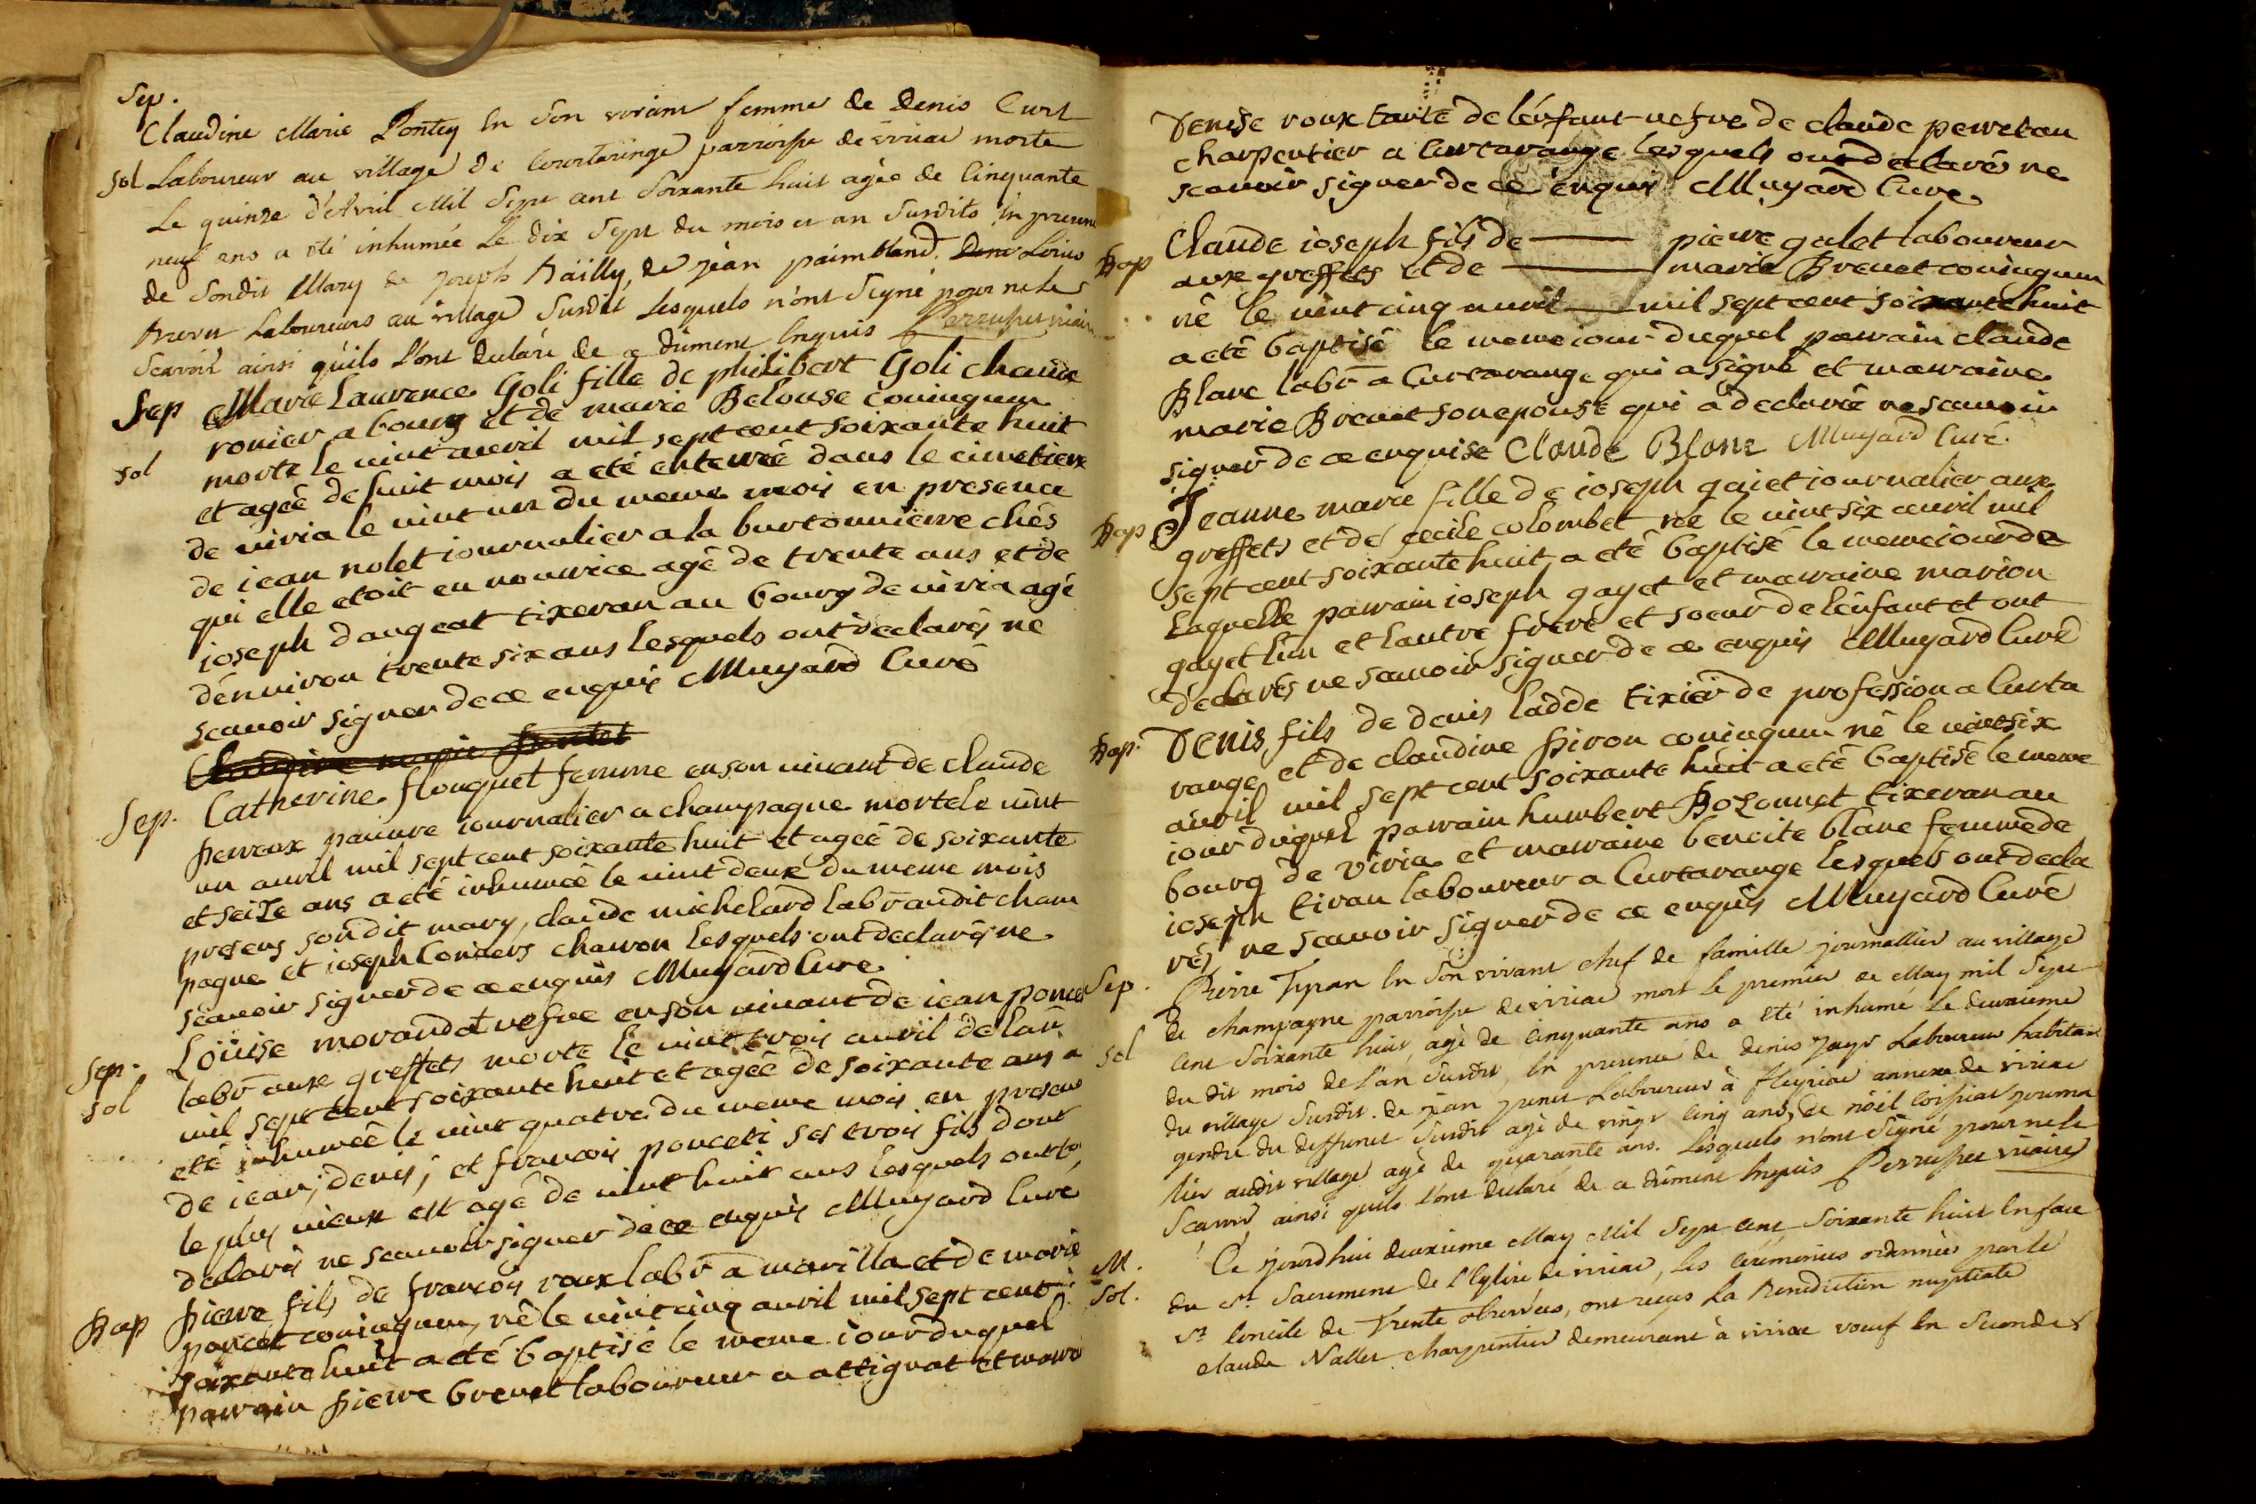 Sep.
Claudine Marie Pontey En Son vivant femme de Denis Curt
sol Laboureur au village de Courtaringe parroisse de viriac morte
Le quinze d'Avril Mil Sept cent Soixante huit âgée de Cinquante
neuf ans a été inhumée Le dix Sept du mois et an Susdits En presence
de Sondit Mary de Joseph Bäilly, de jèan paimbland. Loüis
Brevet Laboureurs au village Susdit, Lesquels n'ont Signé pour ne le
Scavoir ainsi qu'ils l'ont declaré de ce dûment Enquis Perruquet vicaire
Sep Marie Laurence Goli fille de philibert Goli chau
ronier a bourg et de marie Belouse coniugum
sol morte le vint avril mil sept cent soixante huit
et agée de huit mois a eté enterrée dans le cimetiere
de viria le vint un du meme mois en presence
de iean nolet iournalier a la burtonniere chés
qui elle etoit en nourrice agé de trente ans et de
ioseph dangeat tixeran au bourg de viria agé
d'environ trente six ans lesquels ont declarés ne
scavoir signer de ce enquis Muyard Curé
Claudine marie
Sep. Catherine flouquet femme en son vivant de claude
perreox pauvre iournalier a champagne morte le vint
un avril mil sept cent soixante huit et agée de soixante
et seize ans a eté inhumée le vint deux du meme mois
presens son dit mary, claude michelard labr audit cham
pagne et ioseph Coniers charron lesquels ont declarés ne
scavoir signer de ce enquis Muyard Curé
Sep. Loüise morandat vefve en son vivant de iean poncet
sol labr aux greffets morte le vint trois avril de lan
mil sept cent soixante huit et agée de soixante ans a
eté inhumée le vint quatre du meme mois en presence
de iean, denis, et francois ponceti ses trois fils dont
le plus vieux est agé de vint huit ans lesquels ont
declarés ne scavoir signer de ce enquis Muyard Curé
Bap pierre fils de francois roux labr a marilla et de marie
poncet coniugum, né le vint cinq avril mil sept cent
soixante huit a eté baptisé le meme iour duquel
parrain pierre brevet laboureur a attignat et marai
Denise roux tante de lénfant vefve de claude perretan
charpentier a Curtarange lesquels ont declarés ne
scavoir signer de ce énquis Muyard Cure
Bap Claude ioseph fils de pierre galet laboureur
aux greffets et de marie Brevet coniugum
né le vint cinq avril mil sept cent soixante huit
a eté baptisé le meme iour duquel parrain claude
Blanc labr a Curtarange qui a signé et marraine
marie Brevet son epouse qui a declaré ne scavoir
signer de ce enquise Claude Blanc Muyard Curé.
Bap Jeanne marie fille de ioseph gaiet iournalier aux
greffets et de cecile colombet née le vint six avril mil
sept cent soixante huit, a eté baptisé le meme iour de
laquelle parrain ioseph gayet et marraine marion
gayet lun et lautre frere et soeur de lénfant et ont
declarés ne scavoir signer de ce enquis Muyard Curé
Bap. Denis fils de denis ladde tixier de profession a Curta
range et de claudine piron coniugum né le vint six
avril mil sept cent soixante huit a eté baptisé le meme
iour duquel parrain humbert Bozonnet tixeran au
bourg de viria et marraine benoite blanc femme de
ioseph tiran laboureur a Curtarange lesquels ont decla
rés ne scavoir signer de ce enquis Muyard Curé
Sep. Pierre Tiran En Son vivant chef de famille journallier au village
de champagne parroisse de viriac mort le premier de May mil Sept
sol cent Soixante huit, agé de Cinquante ans a été inhumé Le deuxieme
du dit mois de l'an Susdit, En presence de denis Jayr Laboureur habitan
du village Susdit. de jean Laboureur à fleyriac annexe de viriac
gendre du deffunct Susdit agé de vingt cinq ans, de nöel Coissiat journa
lier audit village agé de quarante ans. Lesquels n'ont Signé pour ne le
Scavoir, ainsi qu'ils l'ont declaré de ce dûment Enquis Perruquet vicaire
M. Ce jourd'hui deuxieme May Mil Sept cent Soixante huit En face
Sol. du St. Sacrement de l'Eglise de viriac, les cérémonies ordonnées par le
St. Concile de Trente observées, ont reçus La Benediction nuptiale
claude Nallet charpentier demeurant à viriac veuf En Secondes